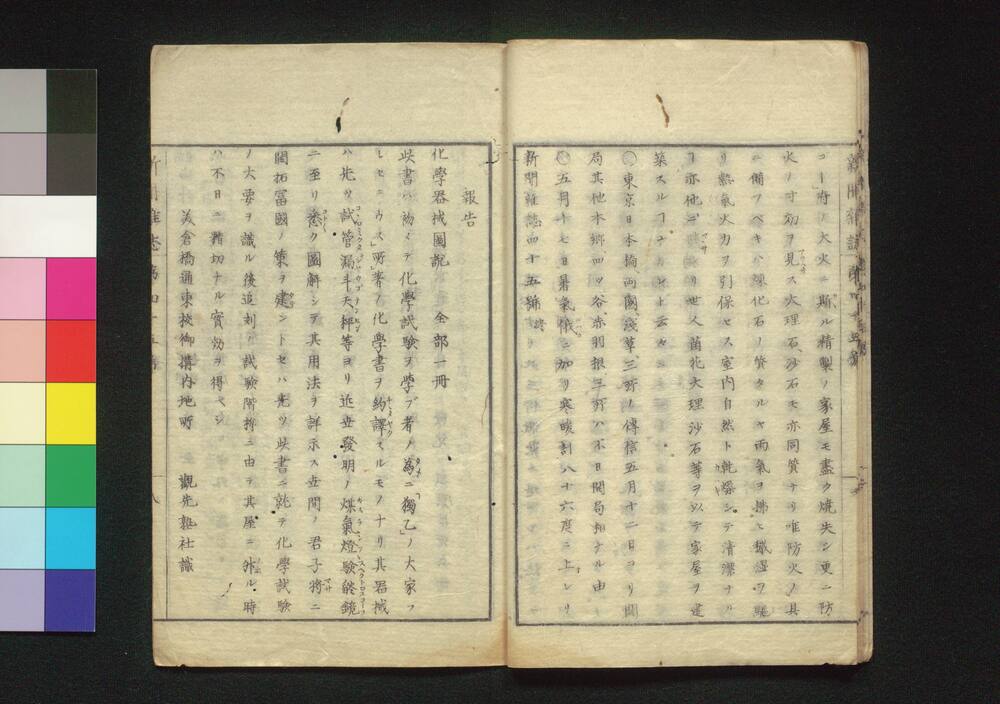 ゴー」府ノ大火ニ斯ル精製ノ家屋モ盡ク焼失シ更ニ防
火ノ寸効ヲ見ス大理石、砂石モ亦同質ナリ唯防火ノ具
ニ備フベキハ煉化石ノ質タルヤ雨氣ヲ拂ヒ織湿ヲ
リ熱氣火力ヲ引保セス室内自然ト乾燥シテ清潔ナル
亦他ニ リ世人菌花大理沙石等ヲ以テ家屋ヲ建
築スルコナカレト云々
○東京日本橋、両國、淺草三所ノ傳信五月十二日ヨリ開
局其他本郷四ッ谷、赤羽根三所ハ不日開局相ナル由
○五月十七日暑氣俄ニ加リ寒暖計八十六度ニ上レリ
新聞雜誌四十五號終
報告
化學器械圖説 全部一冊
此書ハ初メテ化學試験ヲ學ブ者ノ為ニ「獨乙」ノ大家フ
レセニウス」所著ノ化學書ヲ約譯スルモノナリ其器械
ハ先ツ試管漏斗天秤等ヨリ近世發明ノ煤氣燈驗
ニ至リ悉ク圖解シテ其用法ヲ詳示ス世間ノ君子將ニ
開拓富國ノ策ヲ建ントセハ先ツ此書ニ就テ化學試験
ノ大要ヲ識ル後追刻ノ試験階梯ニ由テ其屋ニ外ル時
ハ不日ニ 切ナル實効ヲ得ベシ
美倉橋通東校御構内地所
觀先塾社識
新聞雜誌第四十五號
八